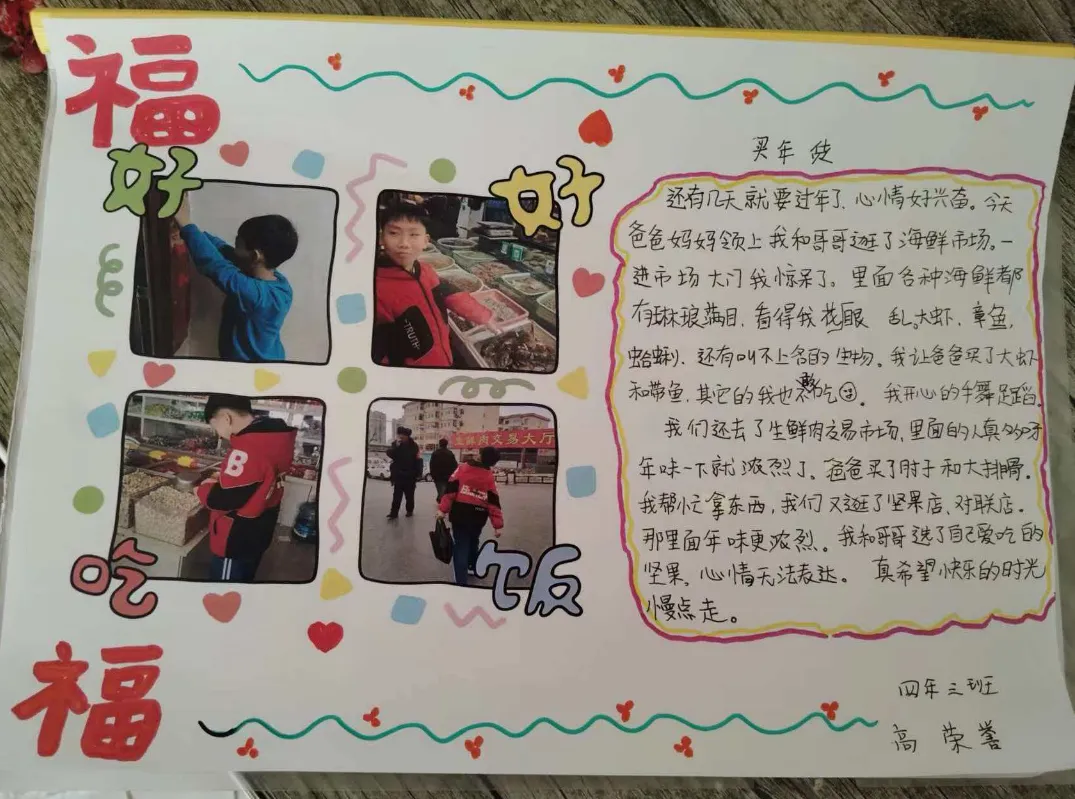 福
好
好
吃
饭
福
TRUTH
B
生鲜肉交易大厅
买年货
还有几天就要过年了、心情好兴奋。今天
爸爸妈妈领上我和哥哥逛了海鲜市场。一
进市场大门我惊呆了。里面各种海鲜都
有琳琅满目,看得我花眼乱。大虾、章鱼,
蛤蜊、还有叫不上名的生物。我让爸爸买了大虾
和带鱼,其它的我也不敢吃。我开心的手舞足蹈。
我们还去了生鲜肉交易市场,里面的人真多呀
年味一下就浓烈了。爸爸买了肘子和大排骨。
我帮忙拿东西,我们又逛了坚果店,对联店。
那里面年味更浓烈。我和哥哥选了自己爱吃的
坚果。心情无法表达。真希望快乐的时光
慢点走。
四年三班
高荣誉